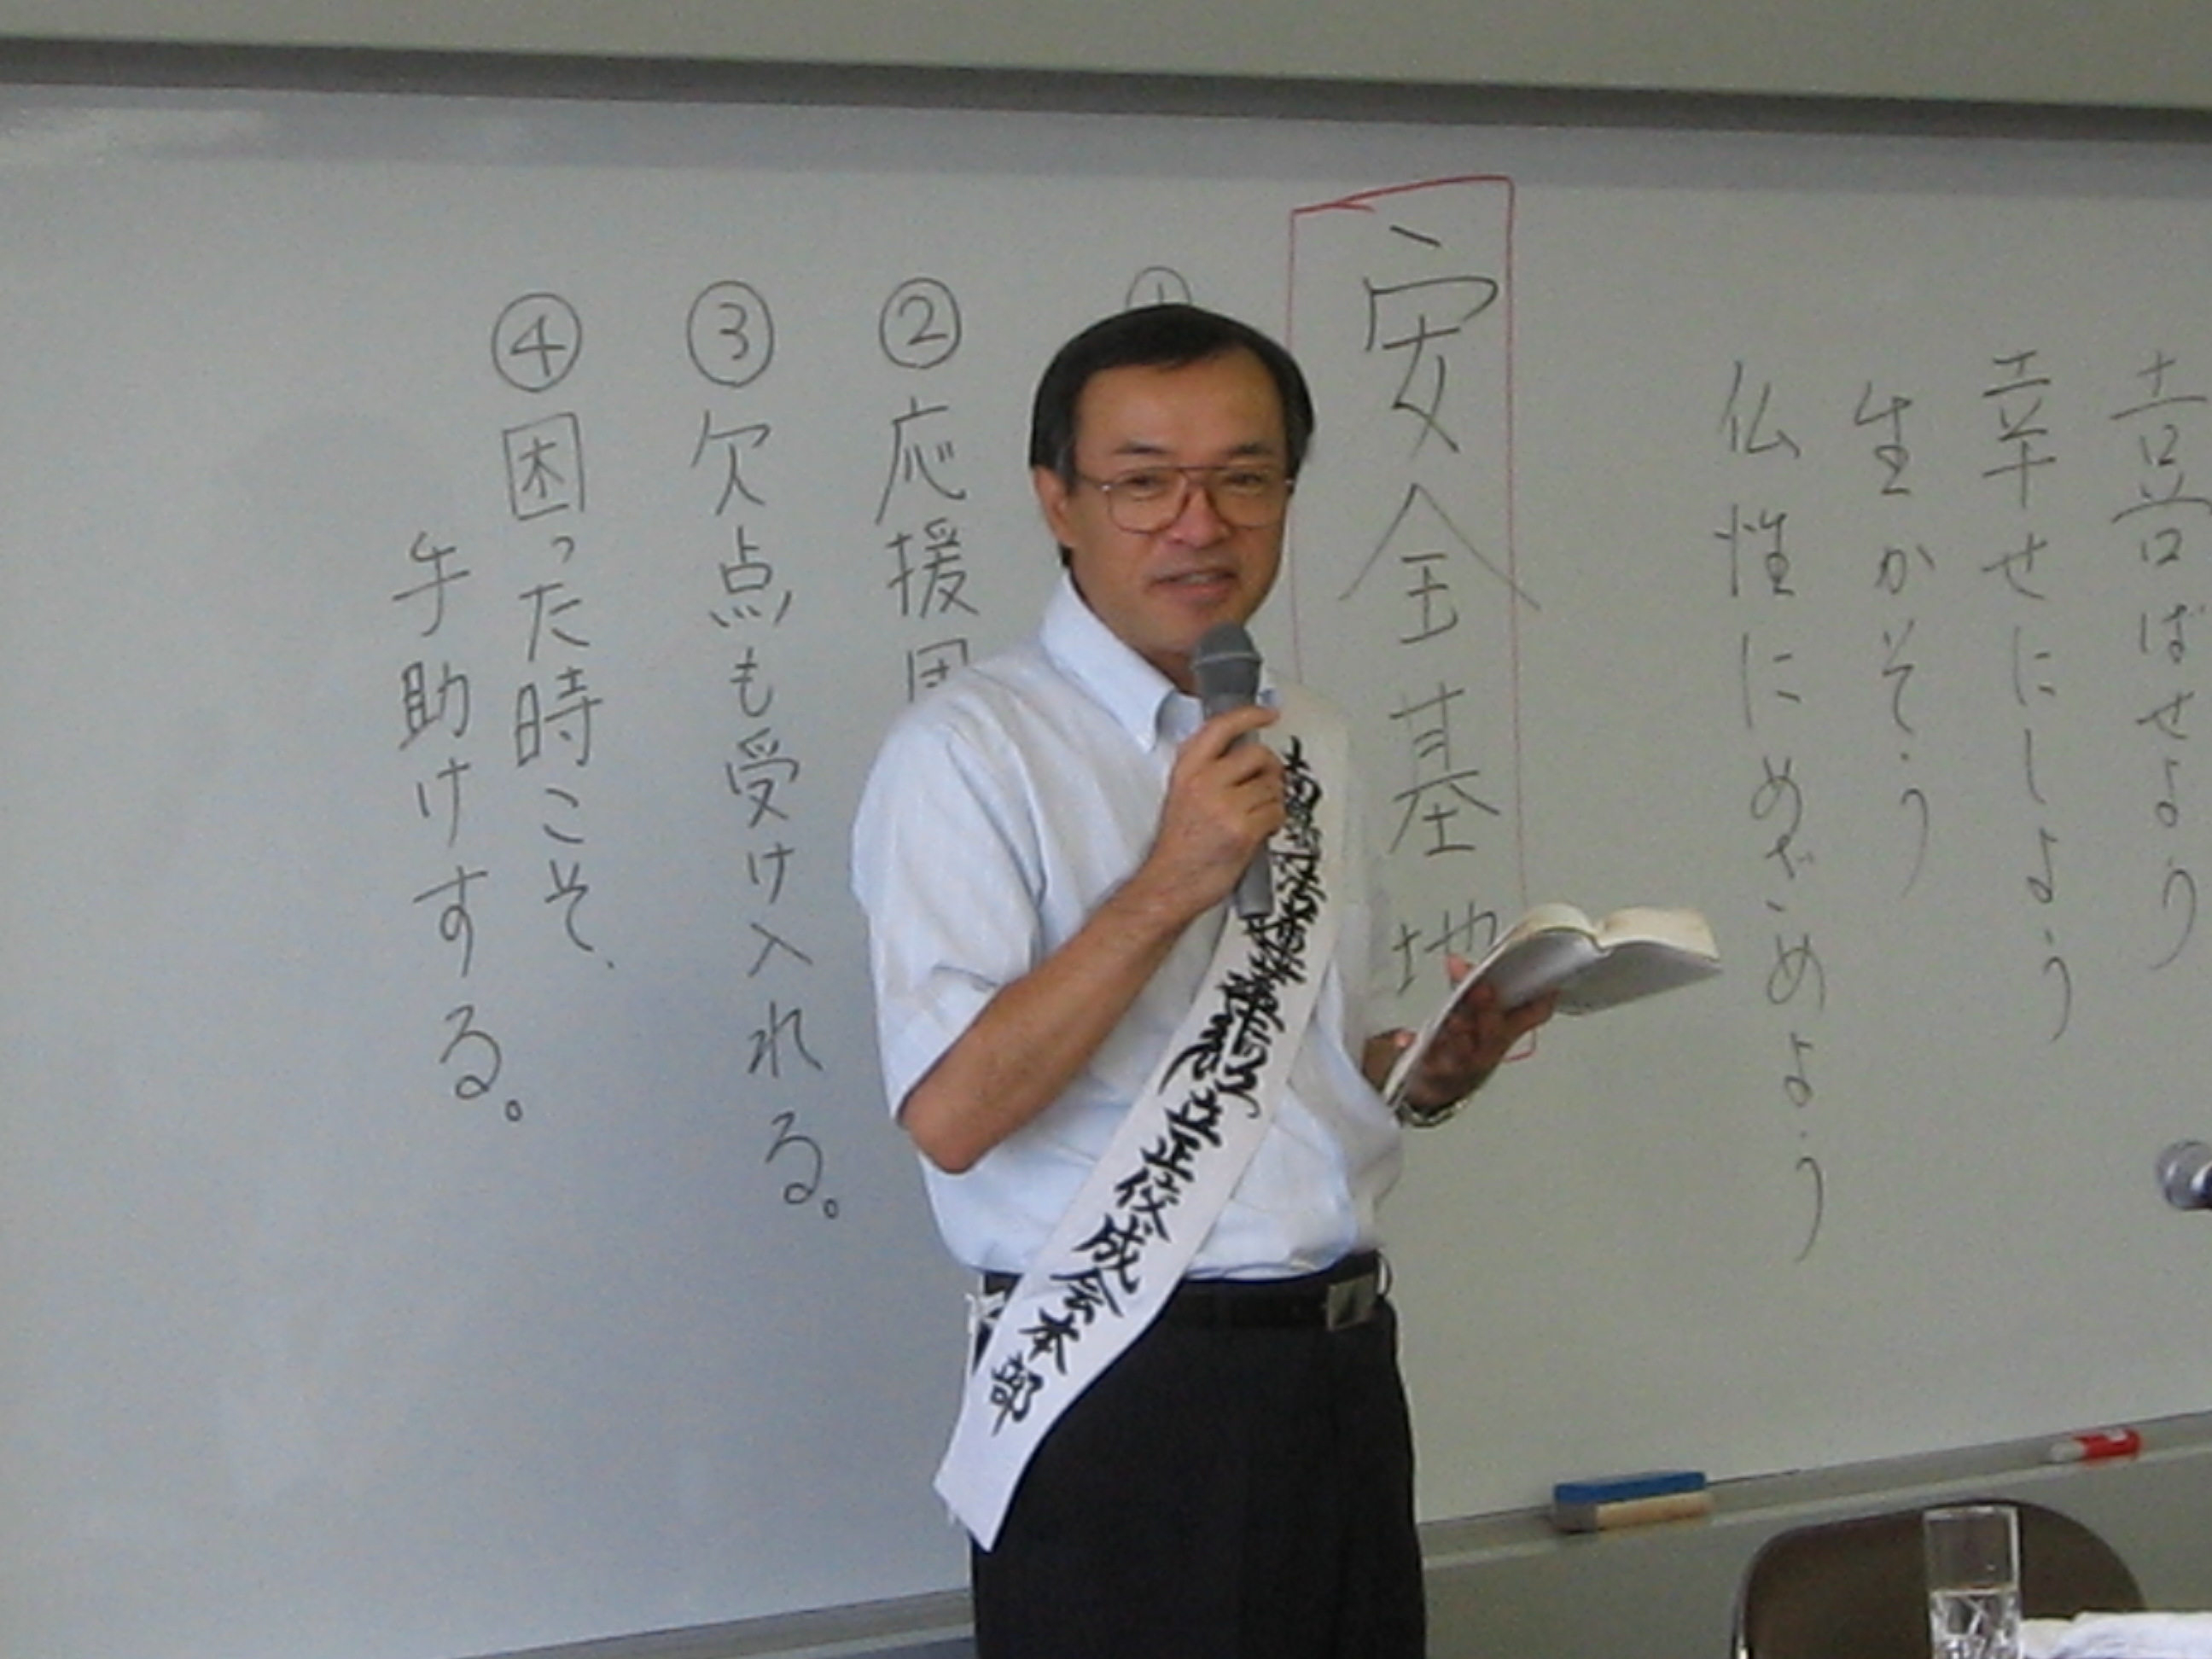 喜ばせよう
幸せにしよう
生かそう
仏性にめざめよう
安全基地
①
②応援団
③欠点も受け入れる。
④困った時こそ、
手助けする。
南無妙法蓮華経 立正佼成会本部